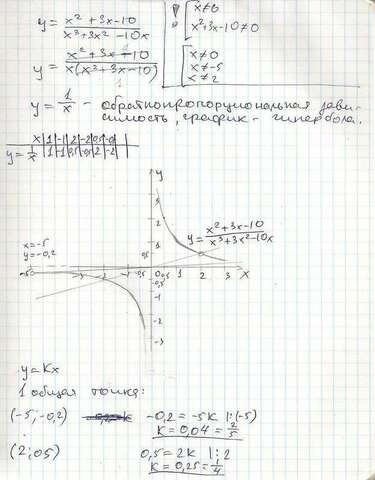 y = x² + 3x - 10 / x³ + 3x² - 10x
x ≠ 0
x² + 3x - 10 ≠ 0
y = x² + 3x - 10 / x(x² + 3x - 10)
x ≠ 0
x ≠ -5
x ≠ 2
y = 1/x - обратнопропорциональная зави-
симость, график - гипербола.
x | 1 | -1 | 2 | -2 | 0,5 | -0,5
y = 1/x | 1 | -1 | 0,5 | -0,5 | 2 | -2
y
3
2
1
y = x² + 3x - 10 / x³ + 3x² - 10x
x = -5
y = -0,2
0,5
-5
-3
-2
-1
-0,5
0
0,5
1
2
3
x
-0,5
-1
-2
-3
y = Kx
1 общая точка:
(-5; -0,2) -0,2 = -5K |:(-5)
K = 0,04 = 2/5
(2; 0,5) 0,5 = 2K |:2
K = 0,25 = 1/4